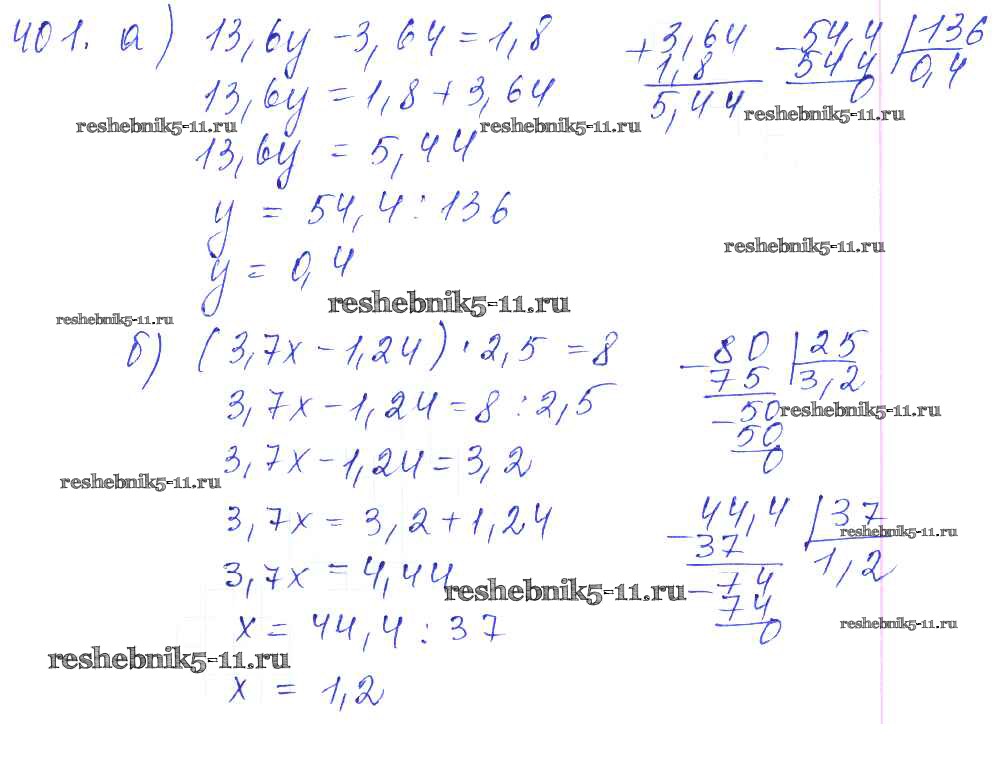 401. а) 13,6y - 3,64 = 1,8
13,6y = 1,8 + 3,64
13,6y = 5,44
y = 54,4 : 136
y = 0,4
+3,64
1,8
5,44
-54,4 | 136
544 0,4
0
reshebnik5-11.ru
reshebnik5-11.ru
reshebnik5-11.ru
reshebnik5-11.ru
reshebnik5-11.ru
reshebnik5-11.ru
б) (3,7x - 1,24) · 2,5 = 8
3,7x - 1,24 = 8 : 2,5
3,7x - 1,24 = 3,2
3,7x = 3,2 + 1,24
3,7x = 4,44
x = 44,4 : 37
x = 1,2
-80 | 25
75 3,2
-50
50
0
-44,4 | 37
37 1,2
-74
74
0
reshebnik5-11.ru
reshebnik5-11.ru
reshebnik5-11.ru
reshebnik5-11.ru
reshebnik5-11.ru
reshebnik5-11.ru